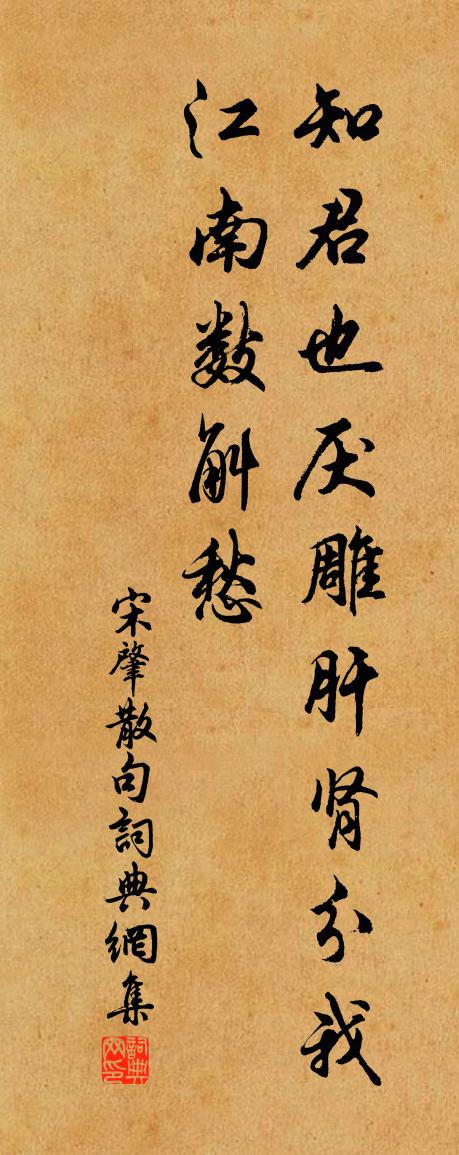 知君也厌雕肝肾分我
江南数斛愁
宋肇散句詞典網集
詞典网印